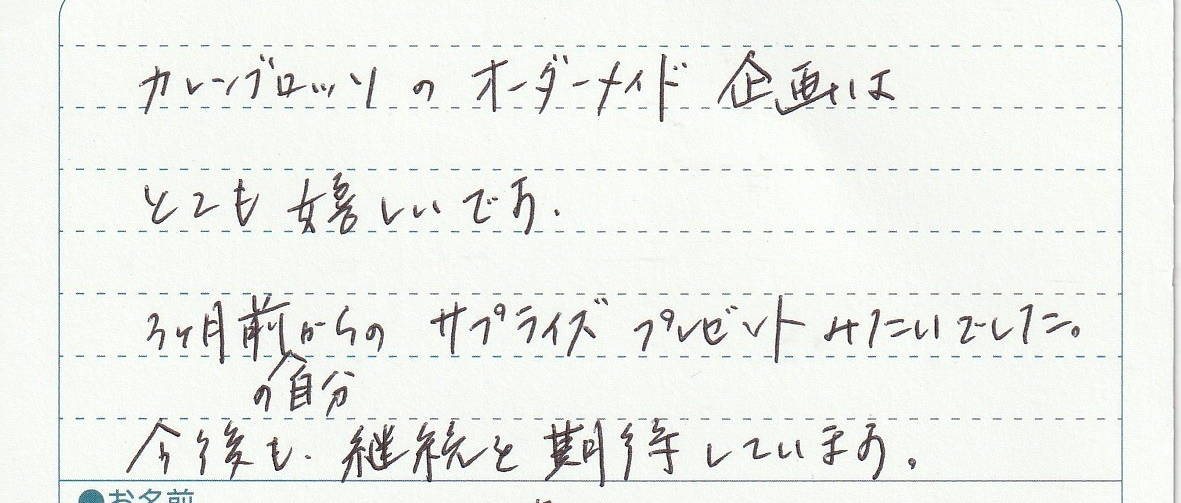 カレンブロッソのオーダーメイド企画は
とても嬉しいです.
3ヶ月前からのサプライズプレゼントみたいでした。
の自分
今後も、継続を期待しています。
●お名前